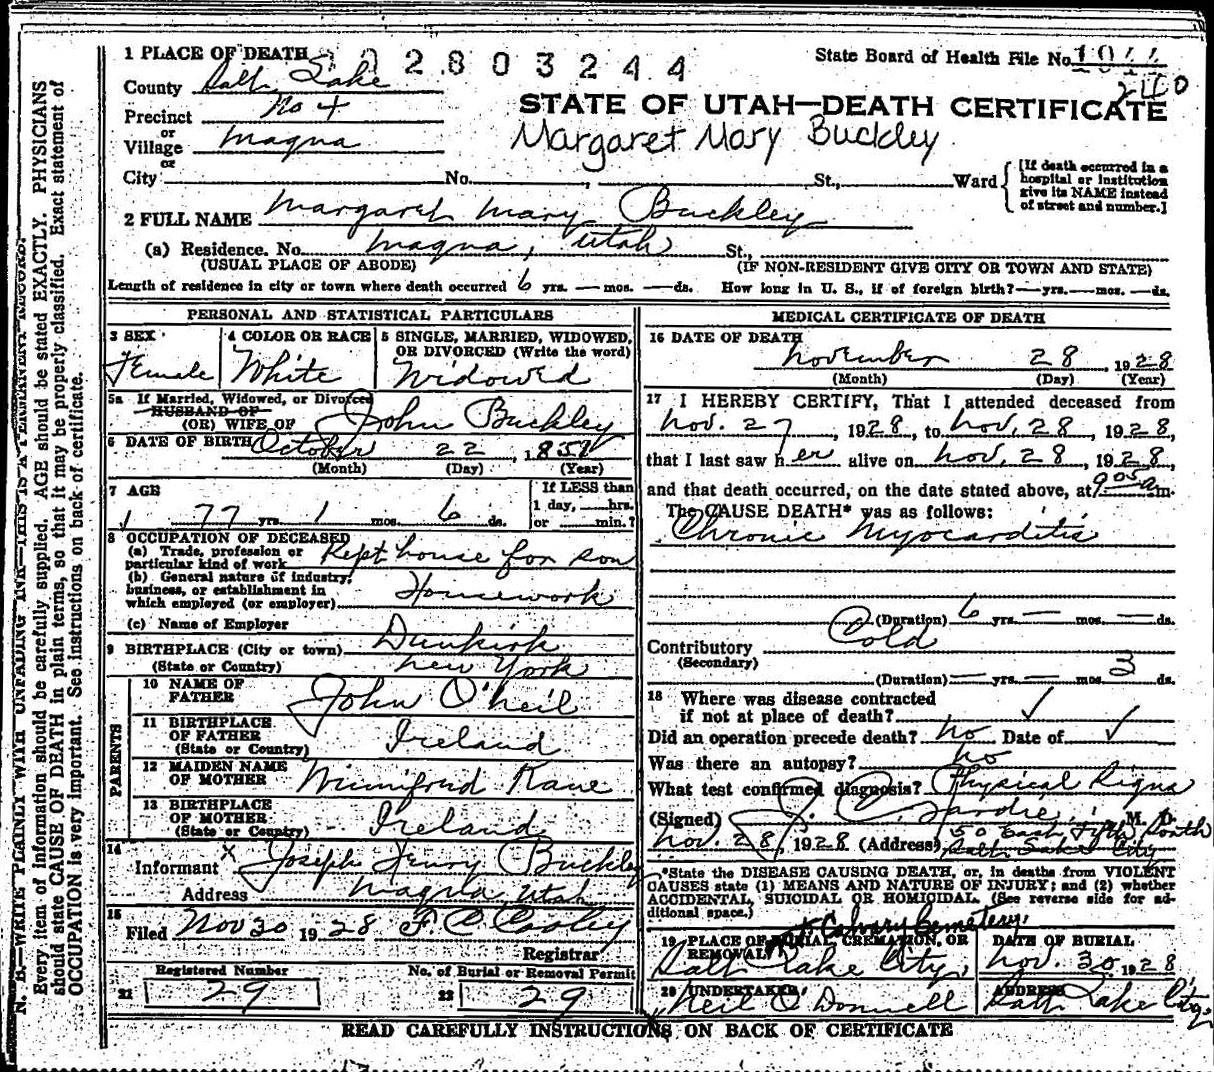 1 PLACE OF DEATH 2 8 0 3 2 4 4
State Board of Health File No.
County Salt Lake
2110
Precinct No 4
STATE OF UTAH—DEATH CERTIFICATE
or
Village Magna
Margaret Mary Buckley
or
City No. , St., Ward
[If death occurred in a hospital or institution give its NAME instead of street and number.]
2 FULL NAME Margaret Mary Buckley
(a) Residence. No. Magna, Utah St.,
(USUAL PLACE OF ABODE) (IF NON-RESIDENT GIVE CITY OR TOWN AND STATE)
Length of residence in city or town where death occurred 6 yrs. — mos. — ds. How long in U. S., if of foreign birth? — yrs. — mos. — ds.
PERSONAL AND STATISTICAL PARTICULARS
3 SEX 4 COLOR OR RACE 5 SINGLE, MARRIED, WIDOWED,
OR DIVORCED (Write the word)
Female White Widowed
5a If Married, Widowed, or Divorced
HUSBAND OF
(OR) WIFE OF John Buckley
6 DATE OF BIRTH October 22, 1851
(Month) (Day) (Year)
7 AGE If LESS than
1 day, hrs.
77 yrs. 1 mos. 6 ds. or min.?
8 OCCUPATION OF DECEASED
(a) Trade, profession or
particular kind of work Kept house for son
(b) General nature of industry,
business, or establishment in
which employed (or employer) Housework
(c) Name of Employer
9 BIRTHPLACE (City or town) Dunkirk
(State or Country) New York
PARENTS
10 NAME OF
FATHER John O'Neil
11 BIRTHPLACE
OF FATHER
(State or Country) Ireland
12 MAIDEN NAME
OF MOTHER Winnifred Kane
13 BIRTHPLACE
OF MOTHER
(State or Country) Ireland
14
Informant x Joseph Henry Buckley
Address Magna, Utah
15
Filed Nov 30 1928 F C Cooley
Registrar
Registered Number No. of Burial or Removal Permit
21 29 22 29
MEDICAL CERTIFICATE OF DEATH
16 DATE OF DEATH
November 28, 1928
(Month) (Day) (Year)
17 I HEREBY CERTIFY, That I attended deceased from
Nov. 27, 1928, to Nov, 28, 1928,
that I last saw her alive on Nov, 28, 1928,
and that death occurred, on the date stated above, at 9 05 a m.
The CAUSE DEATH* was as follows:
Chronic Myocarditis
(Duration) 6 yrs. — mos. — ds.
Contributory Cold
(Secondary)
(Duration) — yrs. — mos. 3 ds.
18 Where was disease contracted
if not at place of death? ✓
Did an operation precede death? no Date of ✓
Was there an autopsy? no
What test confirmed diagnosis? Physical Signs
(Signed) J. C. Landie, M. D.
Nov. 28, 1928 (Address) 50 East Fifth South
Salt Lake City
*State the DISEASE CAUSING DEATH, or, in deaths from VIOLENT
CAUSES state (1) MEANS AND NATURE OF INJURY; and (2) whether
ACCIDENTAL, SUICIDAL OR HOMICIDAL. (See reverse side for ad-
ditional space.)
Mt Calvary Cemetery,
19 PLACE OF BURIAL, CREMATION, OR DATE OF BURIAL
REMOVAL
Salt Lake City, Nov. 30 1928
20 UNDERTAKER ADDRESS
Neil O Donnell Salt Lake City
READ CAREFULLY INSTRUCTIONS ON BACK OF CERTIFICATE
N. B.—WRITE PLAINLY WITH UNFADING INK—THIS IS A PERMANENT RECORD.
Every item of information should be carefully supplied. AGE should be stated EXACTLY. PHYSICIANS
should state CAUSE OF DEATH in plain terms, so that it may be properly classified. Exact statement of
OCCUPATION is very important. See instructions on back of certificate.